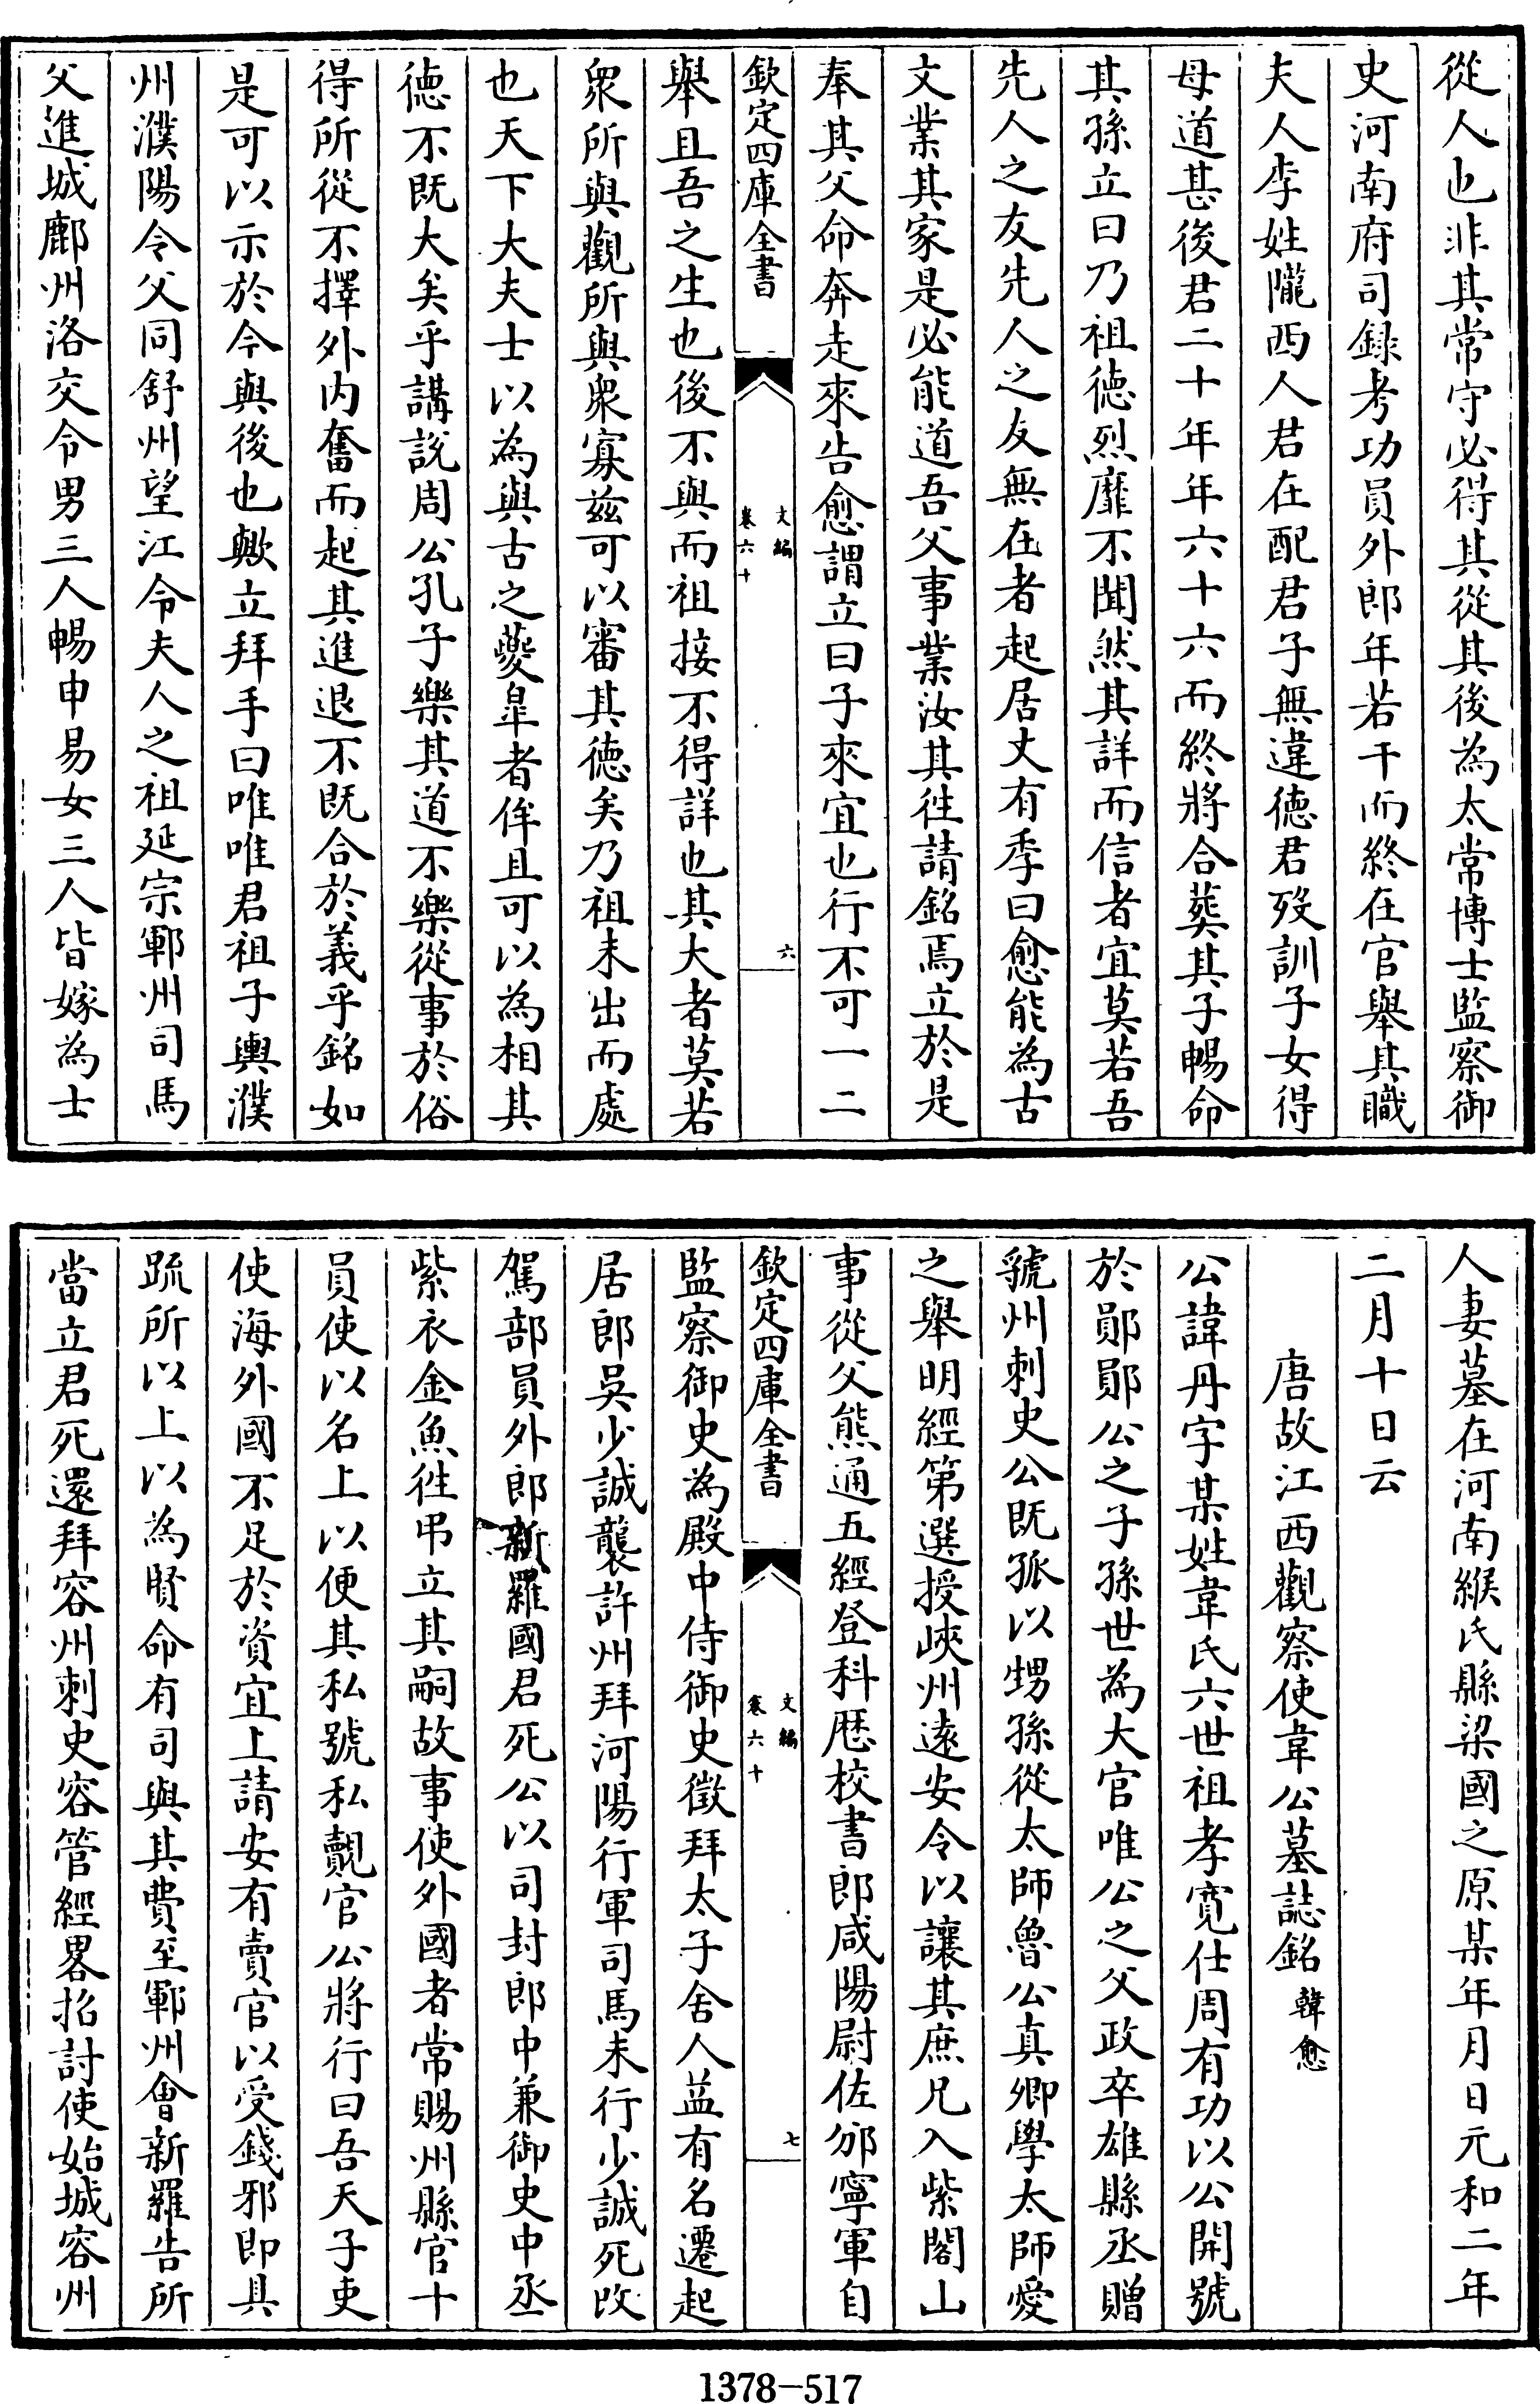 從人也非其常守必得其從其後為太常博士監察御
史河南府司録考功員外郎年若干而終在官舉其職
夫人李姓隴西人君在配君子無違德君歿訓子女得
母道甚後君二十年年六十六而終將合葬其子暢命
其孫立曰乃祖德烈靡不聞然其詳而信者宜莫若吾
先人之友先人之友無在者起居丈有季曰愈能為古
文業其家是必能道吾父事業汝其徃請銘焉立於是
奉其父命奔走來告愈謂立曰子來宜也行不可一二
欽定四庫全書
文編
卷六十
六
舉且吾之生也後不與而祖接不得詳也其大者莫若
衆所與觀所與衆寡兹可以審其德矣乃祖未出而處
也天下大夫士以為與古之夔臯者侔且可以為相其
德不既大矣乎講説周公孔子樂其道不樂從事於俗
得所從不擇外内奮而起其進退不既合於義乎銘如
是可以示於今與後也歟立拜手曰唯唯君祖子輿濮
州濮陽令父同舒州望江令夫人之祖延宗鄆州司馬
父進城鄜州洛交令男三人暢申易女三人皆嫁為士
人妻墓在河南緱氏縣梁國之原某年月日元和二年
二月十日云
唐故江西觀察使韋公墓誌銘 韓愈
公諱丹字某姓韋氏六世祖孝寛仕周有功以公開號
於鄖鄖公之子孫世為大官唯公之父政卒雄縣丞贈
虢州刺史公既孤以甥孫從太師魯公真卿學太師愛
之舉明經第選授峽州逺安令以讓其庶兄入紫閣山
事從父熊通五經登科歴校書郎咸陽尉佐邠寧軍自
欽定四庫全書
文編
卷六十
七
監察御史為殿中侍御史徵拜太子舍人益有名遷起
居郎吳少誠襲許州拜河陽行軍司馬未行少誠死改
駕部員外郎新羅國君死公以司封郎中兼御史中丞
紫衣金魚徃弔立其嗣故事使外國者常賜州縣官十
員使以名上以便其私號私覿官公將行曰吾天子吏
使海外國不足於資宜上請安有賣官以受錢邪即具
疏所以上以為賢命有司與其費至鄆州會新羅告所
當立君死還拜容州刺史容管經畧招討使始城容州
1378—517